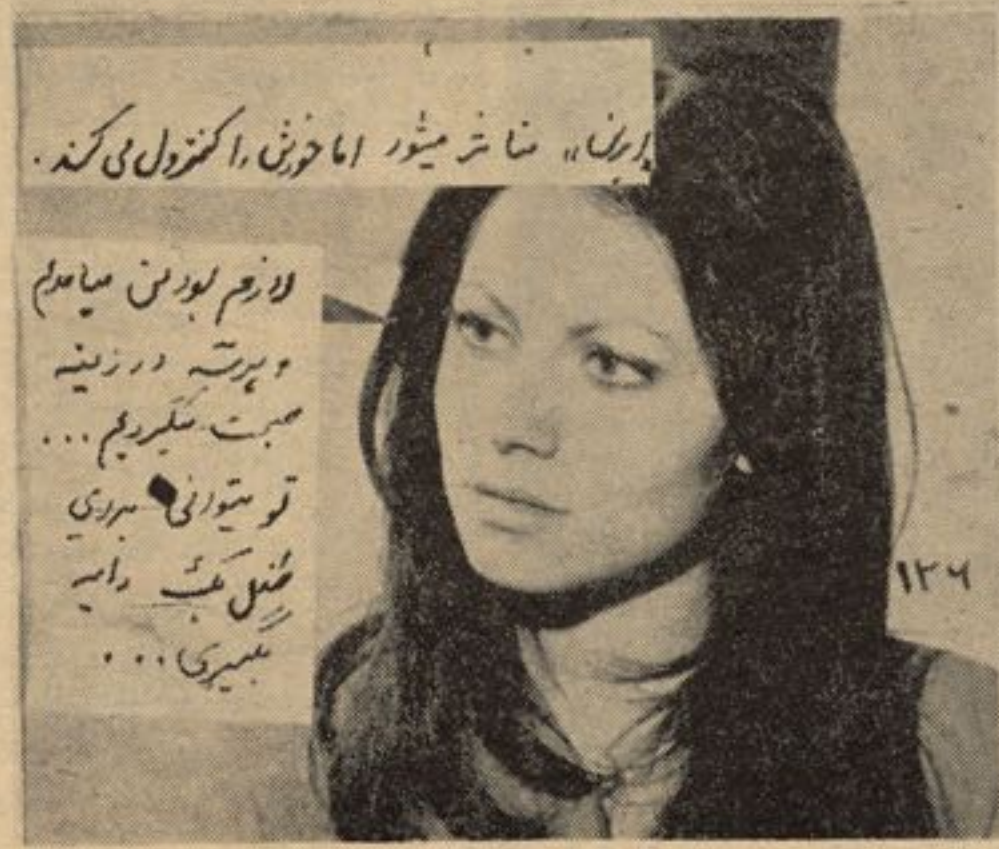 متاثر میشود اما خودش را کنترول می کند.
لازم بود من میامدم
و در زمینه
صحبت میکردیم ...
تو میتوانی بروی
طفل یک دایه
بگیری ...
۱۲۶